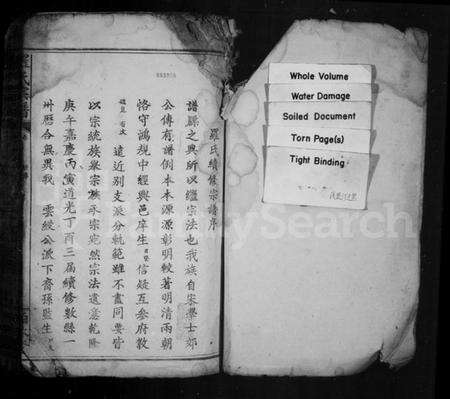 羅氏續修宗譜序
譜牒之興所以繼宗法也我族自宋學士郊
公傳有譜例本本源源彰明較著明清兩朝
恪守鴻規中經興邑庠生 信疑互參府教
遠近別支派分軌範雖不盡同要皆
以宗統族眾宗族承宗宛然宗法遺意乾隆
庚午嘉慶丙寅道光丁酉三屆續修數縣一
卅歷合無異我 雲緩公派下裔孫監生
Whole Volume
Water Damage
Soiled Document
Torn Page(s)
Tight Binding
FamilySearch